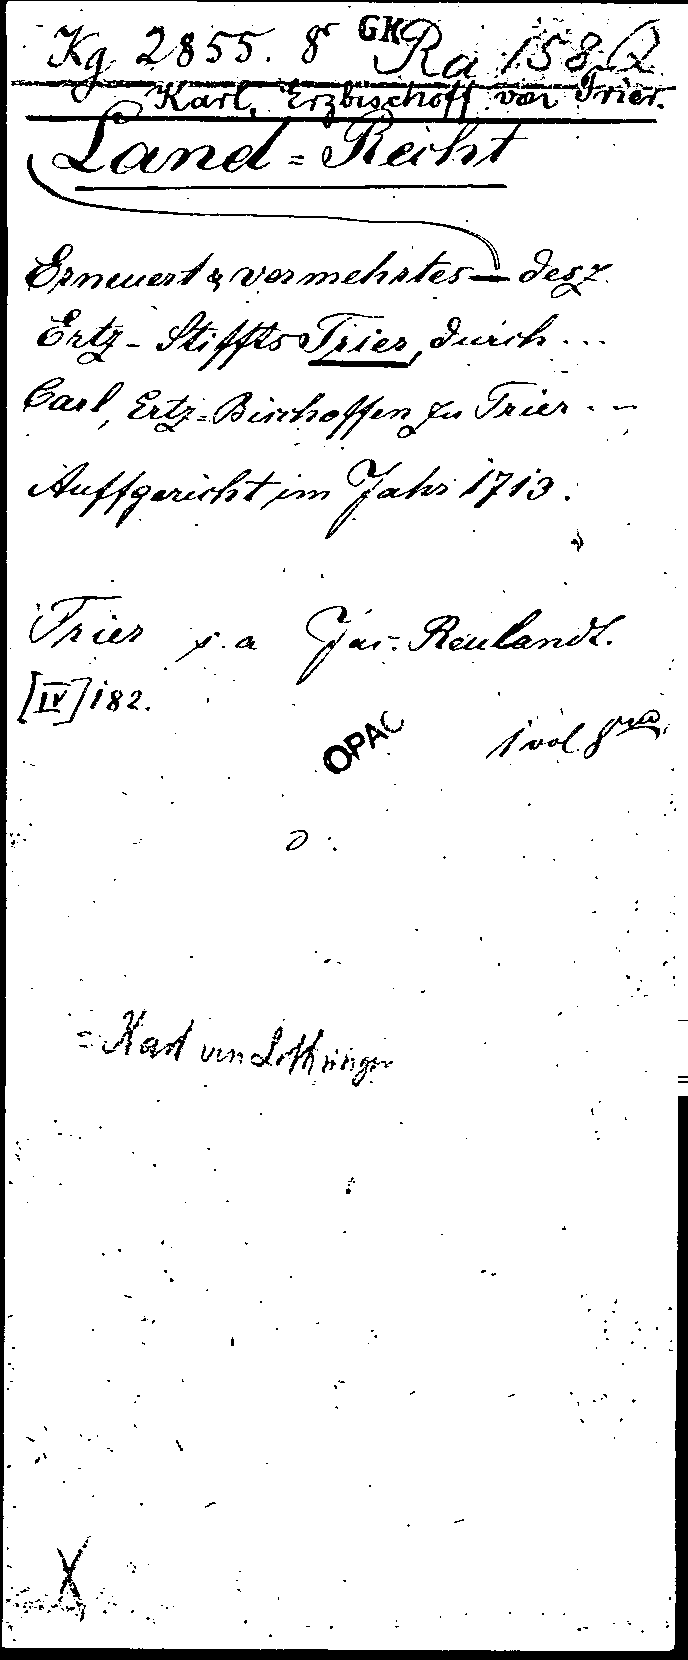 Kg 2855. 8° GK Ra 158 Q
Karl, Erzbischoff von Trier.
Land=Recht
Erneuert & vermehrtes — desz
Ertz-Stiffts Trier, durch ...
Carl, Ertz-Bischoffen zu Trier ...
Auffgericht im Jahr 1713.
Trier s.a Jac. Reulandt.
[IV] 182.
OPAC
1 vol 8vo.
= Karl von Lothringen
X